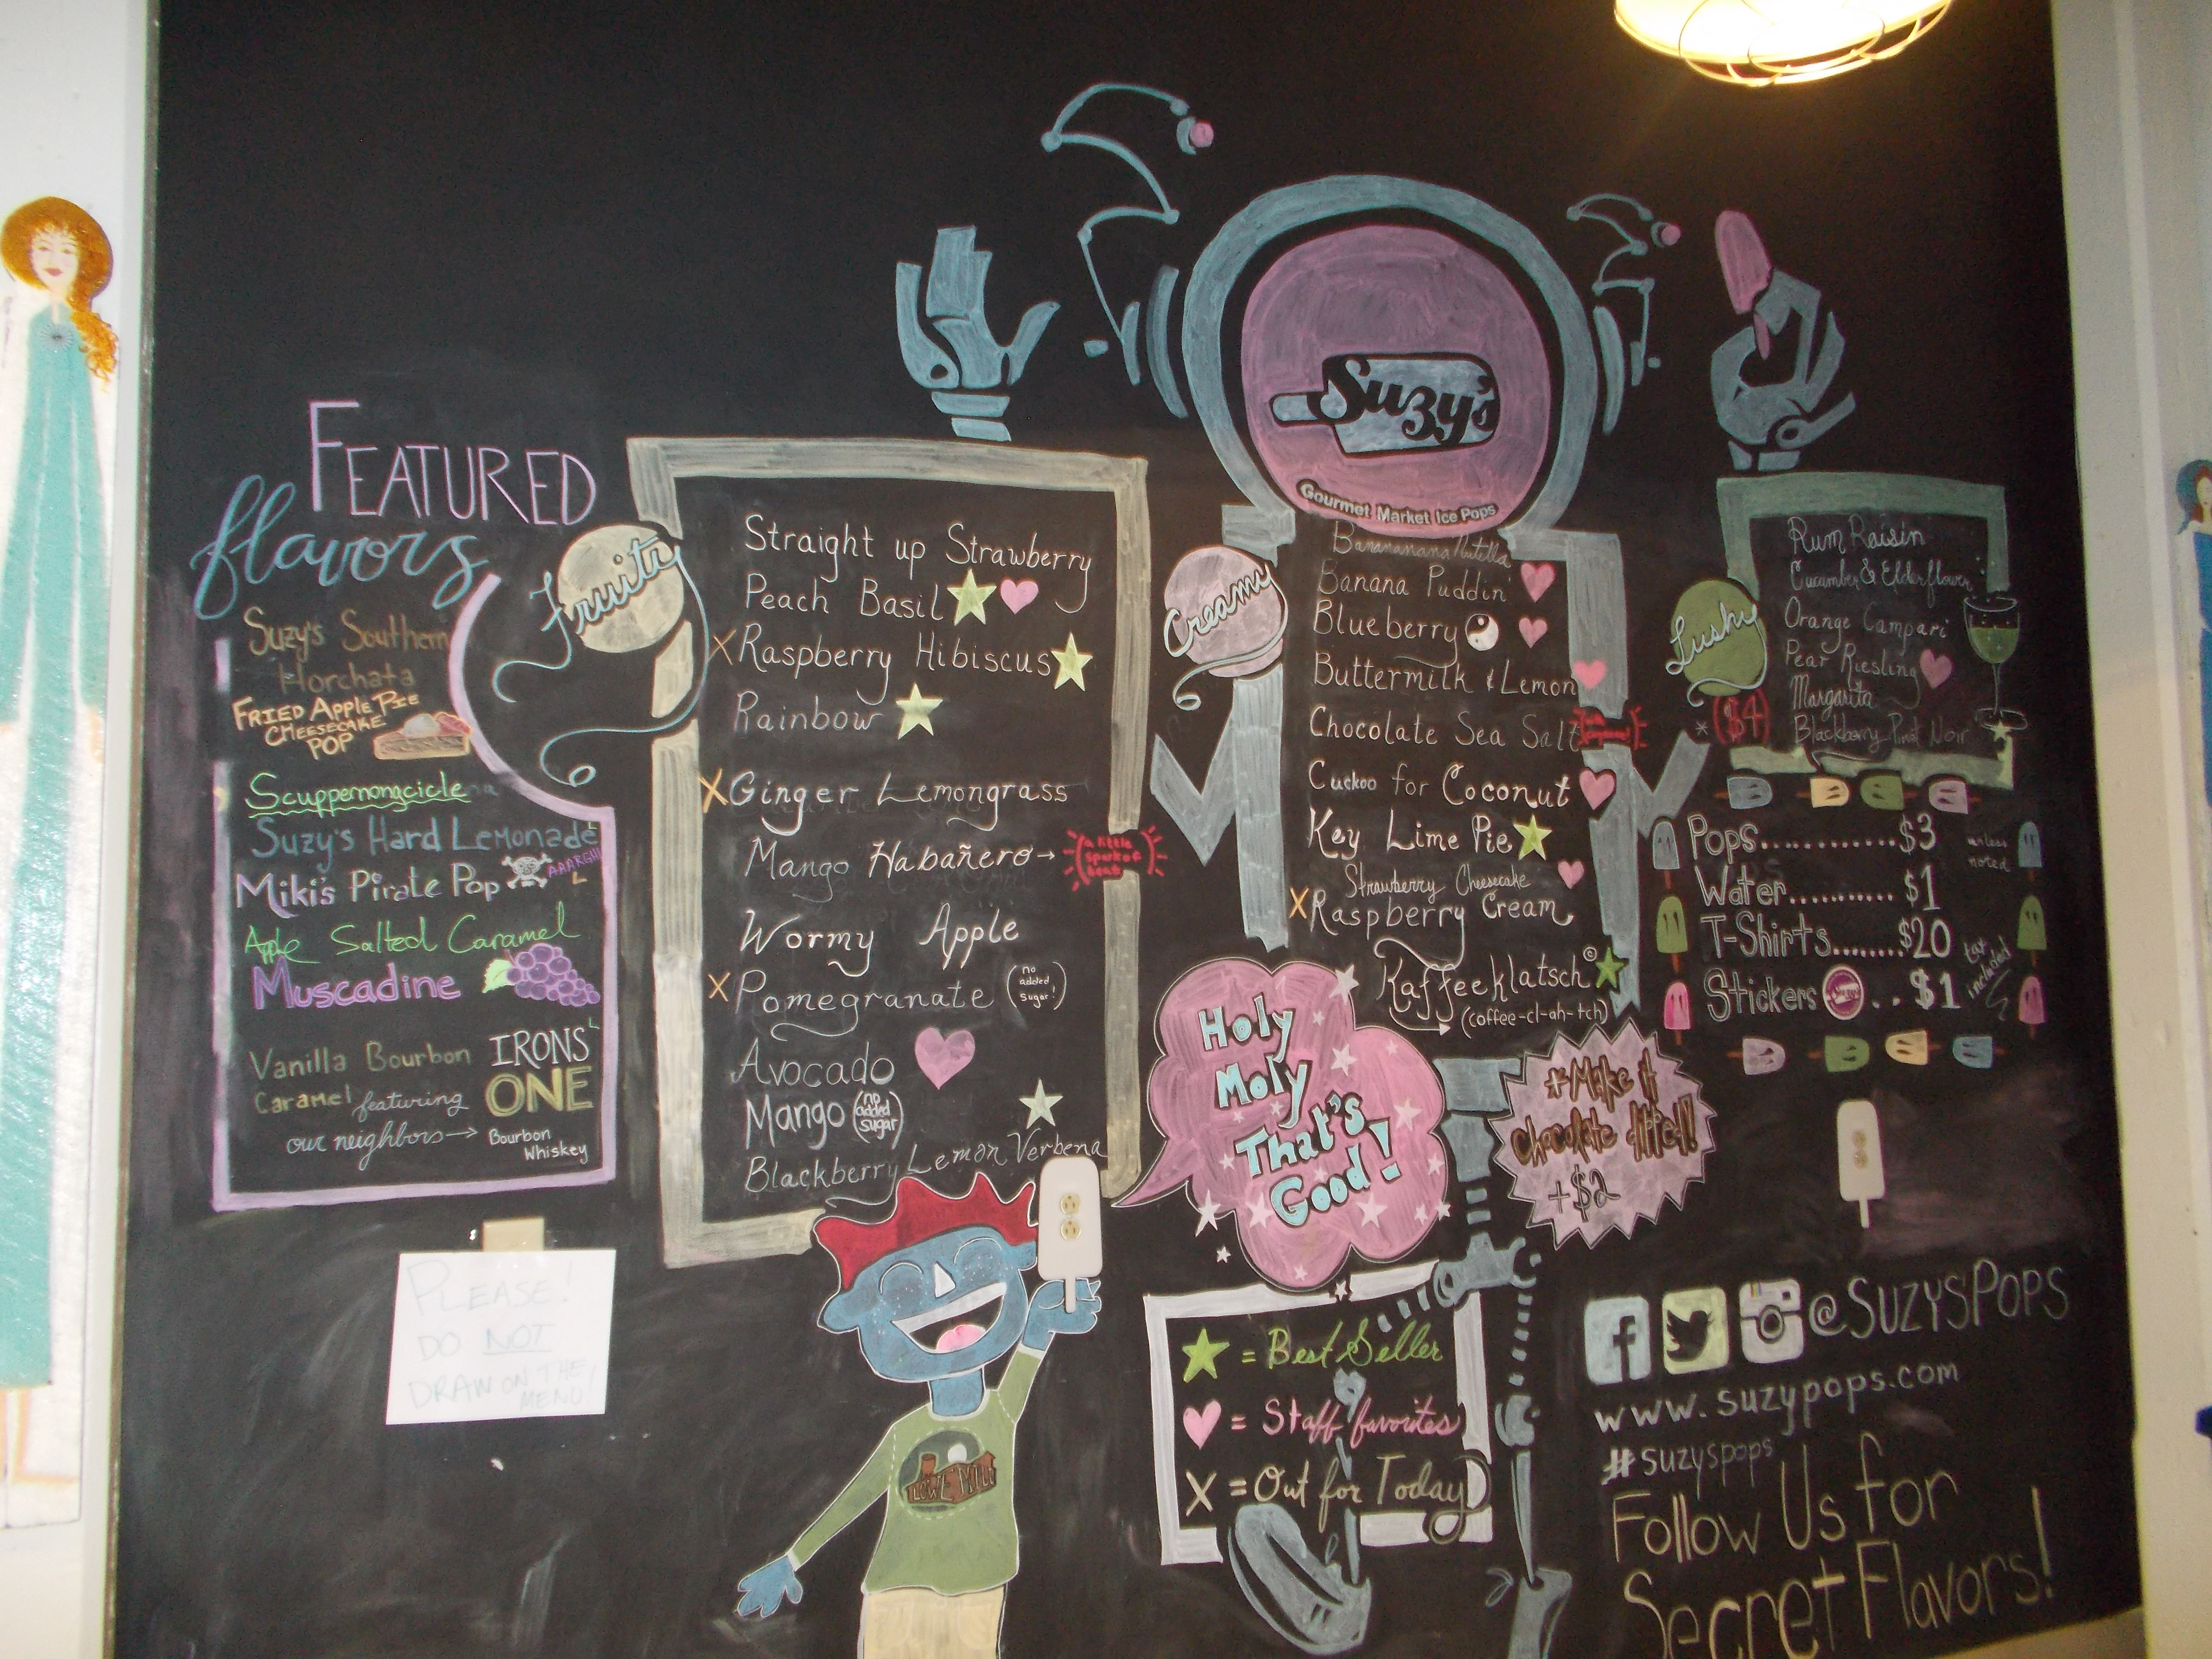 FEATURED
flavors
Suzy's Southern
Horchata
FRIED APPLE PIE
CHEESECAKE
POP
Scuppernongcicle
Suzy's Hard Lemonade L
Miki's Pirate Pop AAARGH!! L
Apple Salted Caramel
Muscadine
Vanilla Bourbon
Caramel featuring
our neighbors →
IRONS L
ONE
Bourbon
Whiskey
PLEASE!
DO NOT
DRAW ON THE
MENU!
Fruity
Straight up Strawberry
Peach Basil
X Raspberry Hibiscus
Rainbow
X Ginger Lemongrass
Mango Habañero → (a little spark of heat)
Wormy Apple
X Pomegranate (no added sugar!)
Avocado
Mango (no added sugar)
Blackberry Lemon Verbena
LOWE MILL
Suzy's
Gourmet Market Ice Pops
Creamy
Banananana Nutella
Banana Puddin'
Blueberry
Buttermilk & Lemon
Chocolate Sea Salt
Cuckoo for Coconut
Key Lime Pie
Strawberry Cheesecake
X Raspberry Cream
Kaffeeklatsch ©
(coffee-cl-ah-tch)
Holy
Moly
That's
Good!
*Make it
Chocolate dipped!
+$2
= Best Seller
= Staff favorites
X = Out for Today
Lushy
* ($4)
Rum Raisin
Cucumber & Elderflower
Orange Campari
Pear Riesling
Margarita
Blackberry Pinot Noir
Pops............$3 unless noted
Water...........$1
T-Shirts........$20
Stickers .. $1 tax included
f @SUZYSPOPS
www.suzypops.com
#suzyspops
Follow Us for
Secret Flavors!